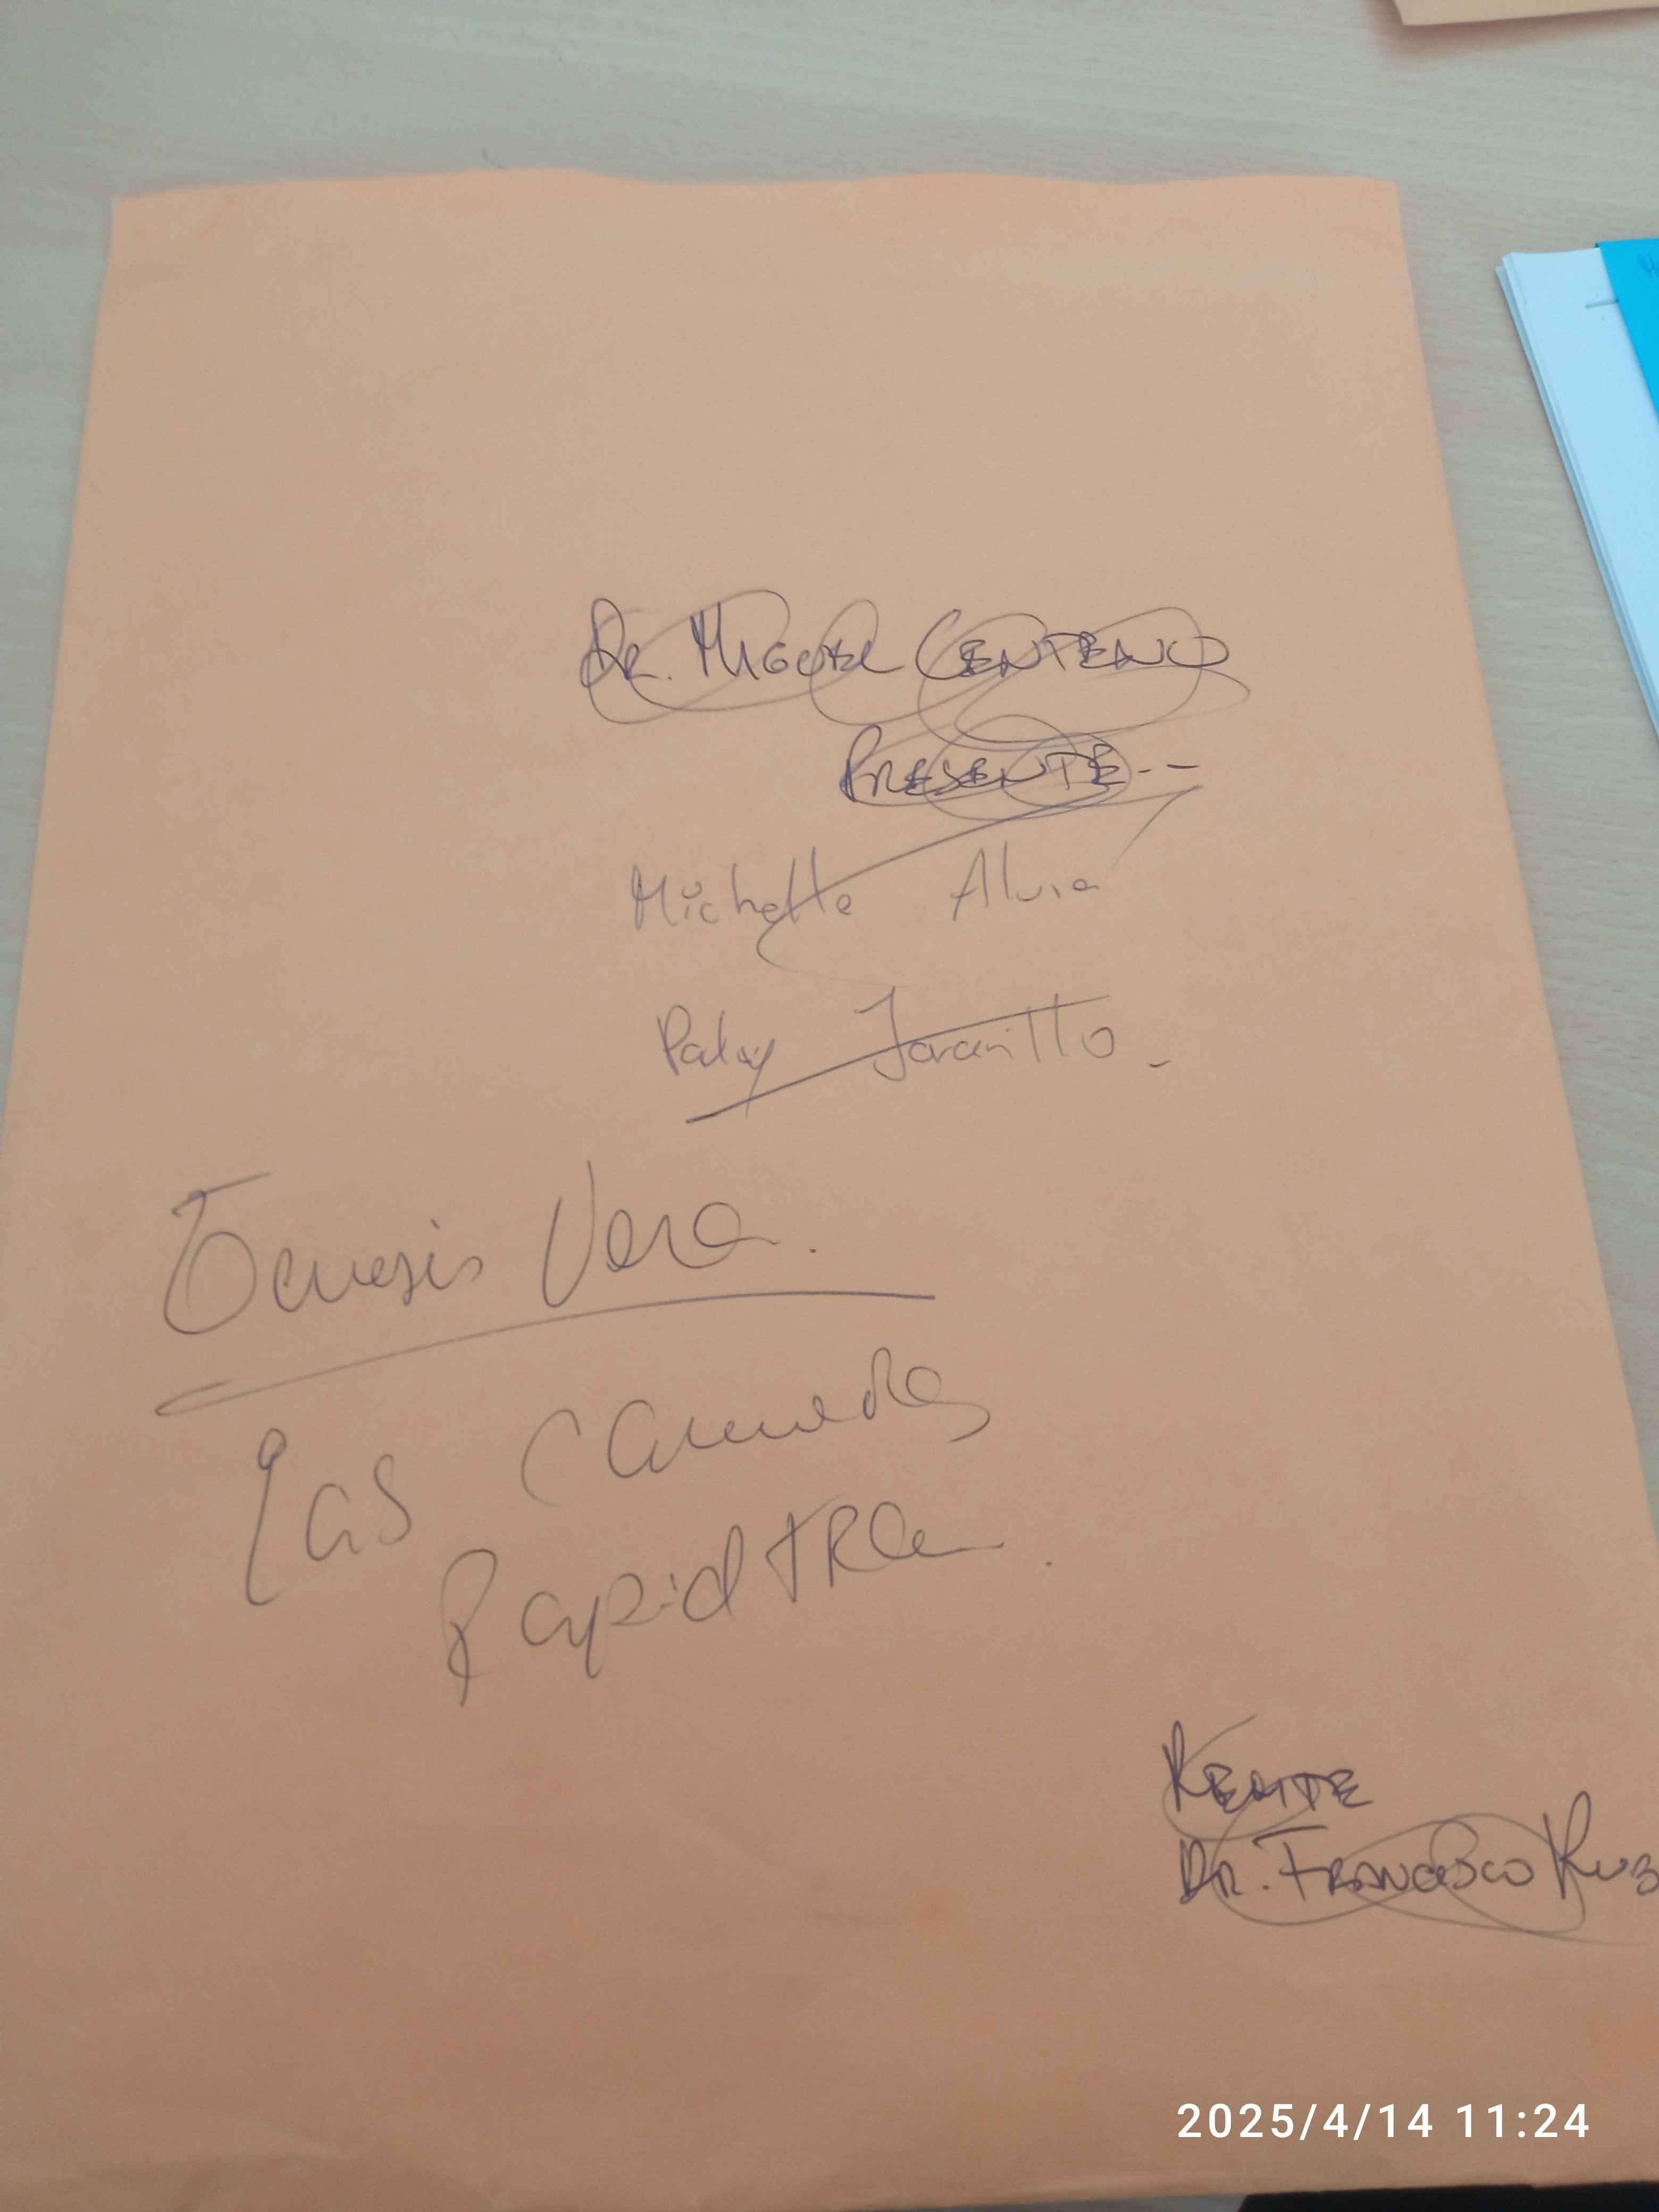 Dr. Miguel Centeno
Presente --
Michelle Alvia
Paty Jaramillo -
Genesis Vera.
Las Cameras
Rapid
Remite
Dr. Francisco
2025/4/14 11:24